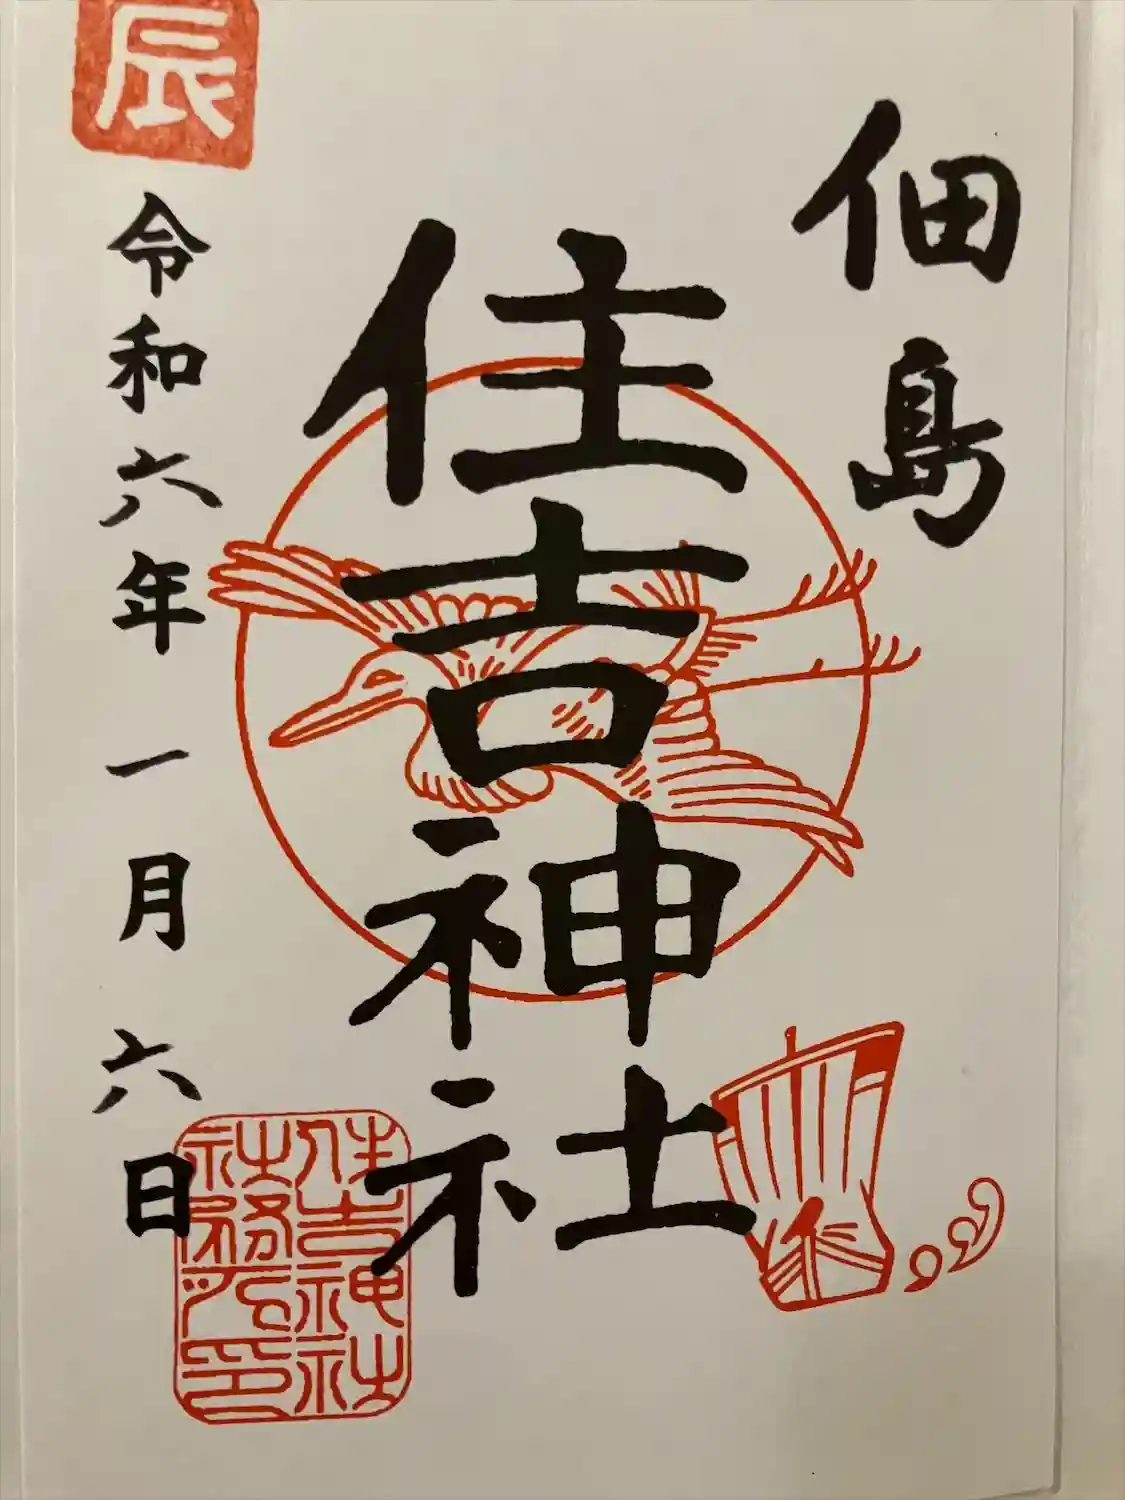 佃島
住吉神社
辰
令和六年一月六日
住吉神社
社務所之印